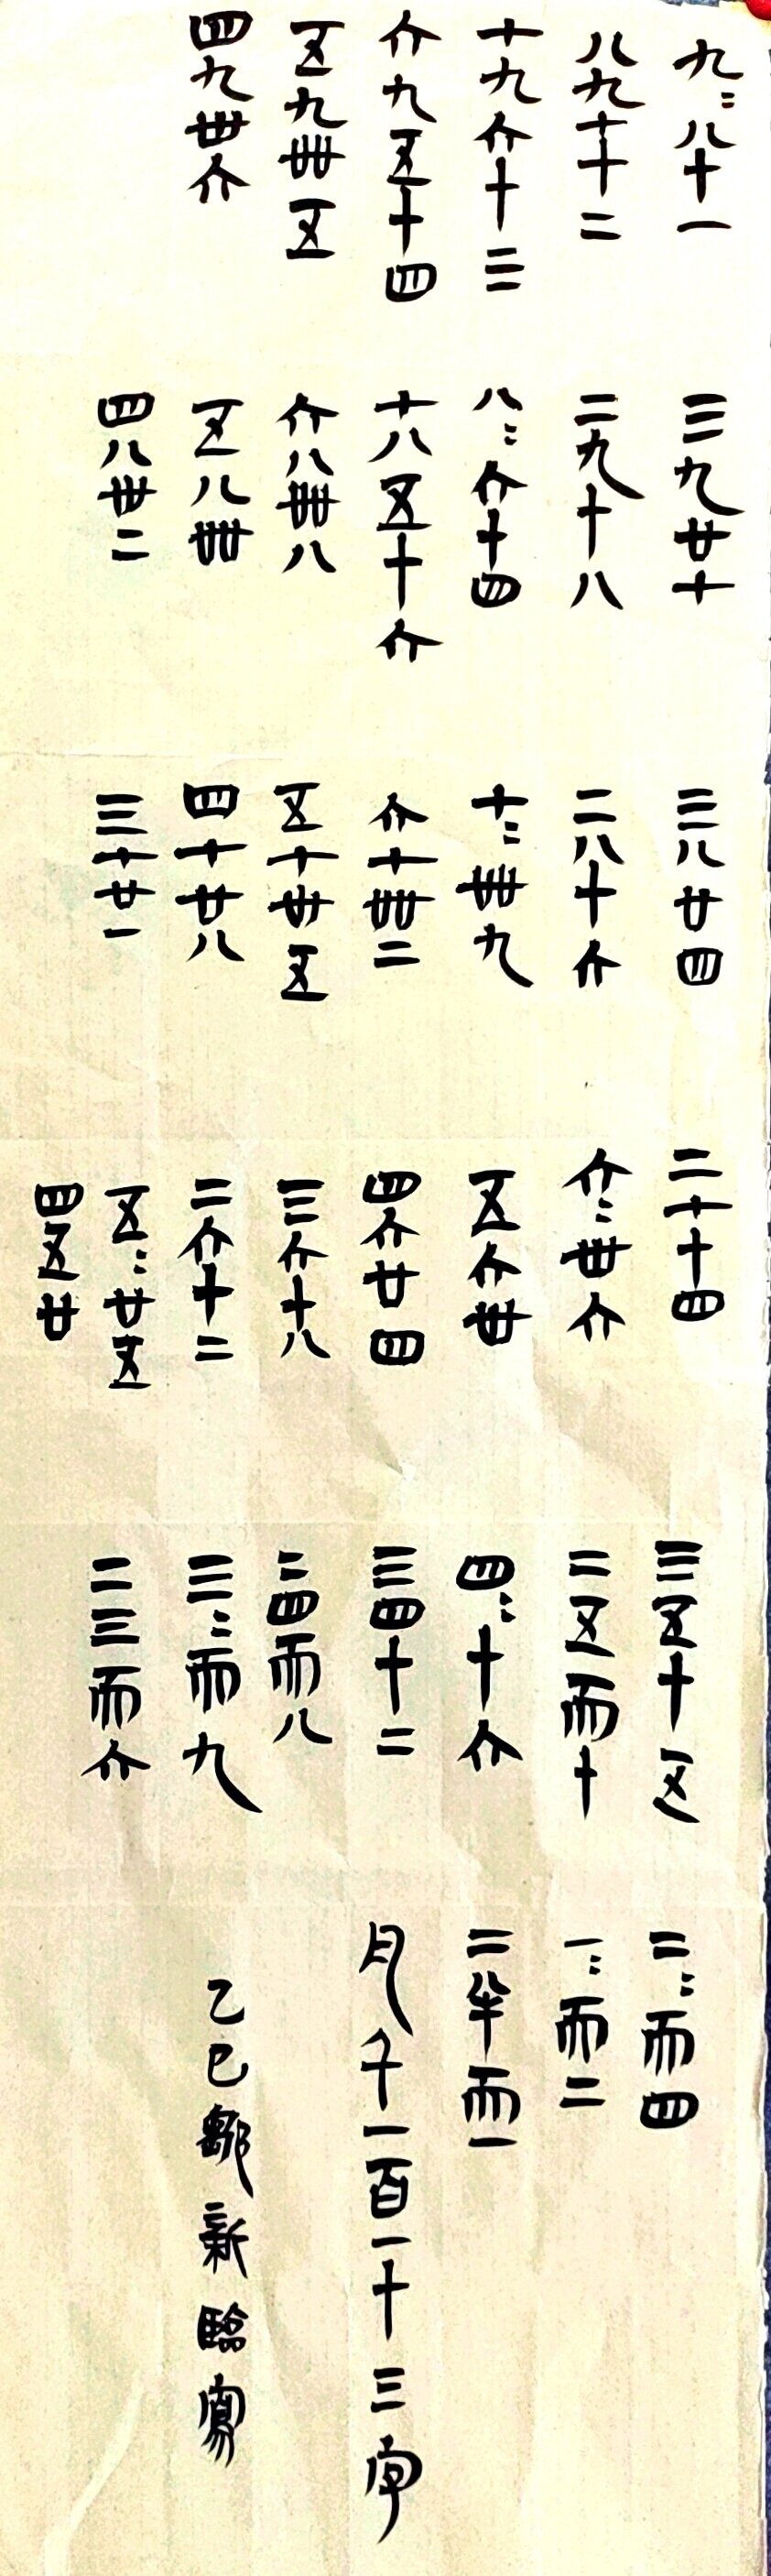 九〻八十一
八九七十二
七九六十三
六九五十四
五九卌五
四九卅六
三九廿七
二九十八
八〻六十四
七八五十六
六八卌八
五八卌
四八卅二
三八廿四
二八十六
七〻卌九
六七卌二
五七卅五
四七廿八
三七廿一
二七十四
六〻卅六
五六卅
四六廿四
三六十八
二六十二
五〻廿五
四五廿
三五十五
二五而十
四〻十六
三四十二
二四而八
三〻而九
二三而六
二〻而四
一〻而二
二半而一
凡千一百一十三字
乙巳鄒新臨寫